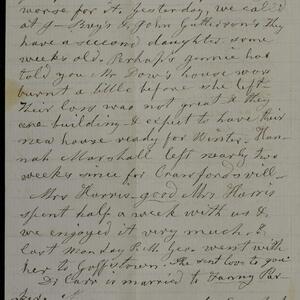 worse for it. Yesterday, we called
at J- Bry's & John Gutterson's they
have a second daughter some
weeks old. Perhaps Jennie has
told you Mr Dow's house was
burnt a little before she left-
Their loss was not great & they
are building & expect to have their
new house ready for Winter. Han-
nah Marshall left nearly two
weeks since for Crawfordsvill-
Mrs Harris, good Mrs Harris
spent half a week with us & we
enjoyed it very much, &
last Monday P.M. Geo. went with
her to Goffstown. She sent love to you
D. Carr is married to Fanny Par-